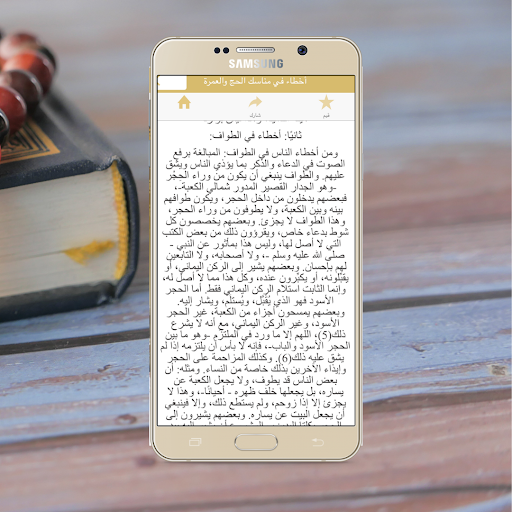 SAMSUNG
أخطاء في مناسك الحج والعمرة
شارك
قيم
ثانيًا: أخطاء في الطواف:
ومن أخطاء الناس في الطواف: المبالغة برفع
الصوت في الدعاء والذكر بما يؤذي الناس ويشق
عليهم. والطواف ينبغي أن يكون من وراء الحِجْر
-وهو الجدار القصير المدور شمالي الكعبة-،
فبعضهم يدخلون من داخل الحجر، ويكون طوافهم
بينه وبين الكعبة، ولا يطوفون من وراء الحجر،
وهذا الطواف لا يجزئ. وبعضهم يخصصون كل
شوط بدعاء خاص، ويقرؤون ذلك من بعض الكتب
التي لا أصل لها، وليس هذا بمأثور عن النبي -
صلى الله عليه وسلم -، ولا أصحابه، ولا التابعين
لهم بإحسان. وبعضهم يشير إلى الركن اليماني، أو
يقبّلونه، أو يكبّرون عنده، وكل هذا مما لا أصل له،
وإنما الثابت استلام الركن اليماني فقط، أما الحجر
الأسود فهو الذي يُقَبَّل، ويُستلم، ويشار إليه.
وبعضهم يمسحون أجزاء من الكعبة، غير الحجر
الأسود، وغير الركن اليماني، مع أنه لا يشرع
ذلك(5)، اللهم إلا ما ورد في الملتزم -وهو ما بين
الحجر الأسود والباب-، فإنه لا بأس أن يلتزمه إذا لم
يشق عليه ذلك(6). وكذلك المزاحمة على الحجر
وإيذاء الآخرين بذلك خاصة من النساء. ومثله: أن
بعض الناس قد يطوف، ولا يجعل الكعبة عن
يساره، بل يجعلها خلف ظهره - أحيانًا-، وهذا لا
يجزئ إلا إذا زوحم، ولم يستطع ذلك، وإلا فينبغي
أن يجعل البيت عن يساره. وبعضهم يشيرون إلى